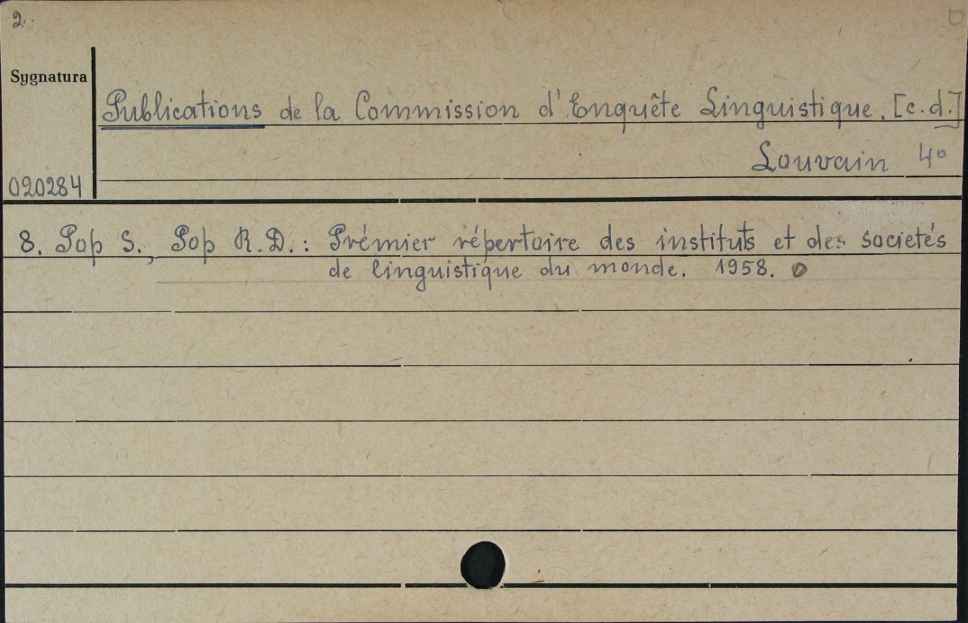 2.
Sygnatura
Publications de la Commission d'Enquête Linguistique. [c.d.]
Louvain 4°
020284
8. Pop S., Pop R.D.: Prémier répertoire des instituts et des societés
de linguistique du monde. 1958.